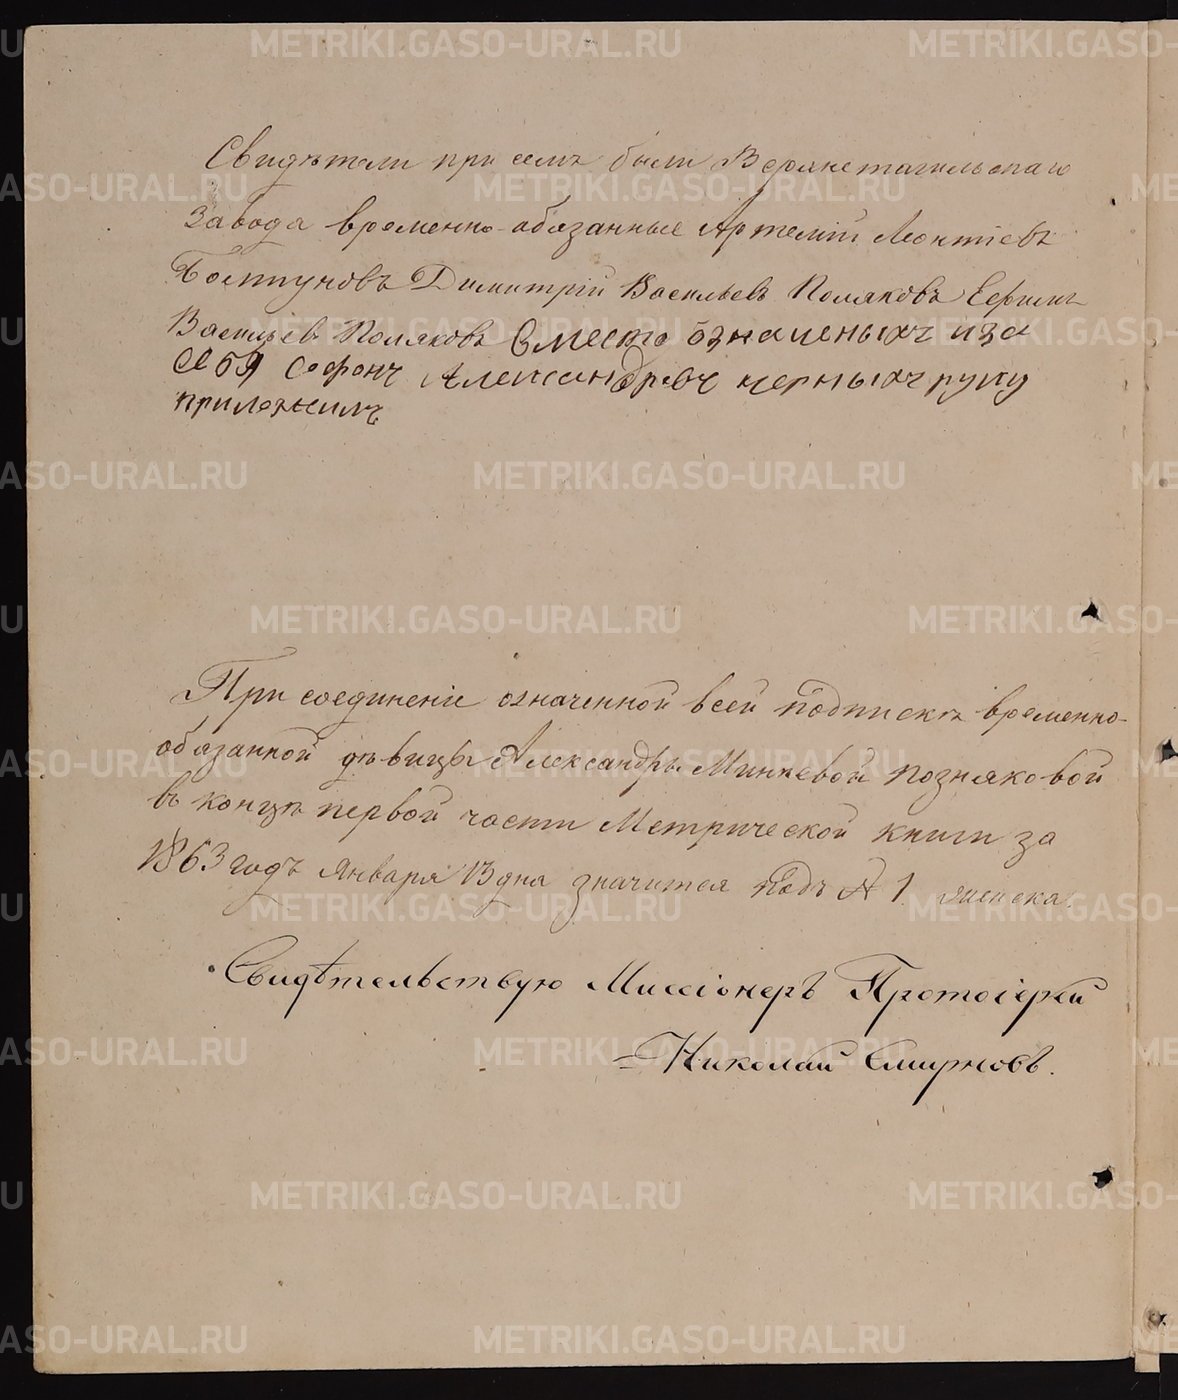 Свидѣтели при семъ были Верхнетагильскаго
Завода временно-обязанные Артемій Леонтіевъ
Болтуновъ Димитрій Васильевъ Поляковъ Ефимъ
Васильевъ Поляковъ Вместо озналеныхъ изо
себя Софонъ Александровъ черныхъ руку
приложилъ
При соединеніе означенной всей подпискѣ временно-
обязанной дѣвицы Александры Минѣевой Позняковой
въ концѣ первой части Метрической книги за
1863 годъ Января 13 дня значится подъ № 1
Свидѣтельствую Миссіонеръ Протоіерей
Николай Смирновъ.